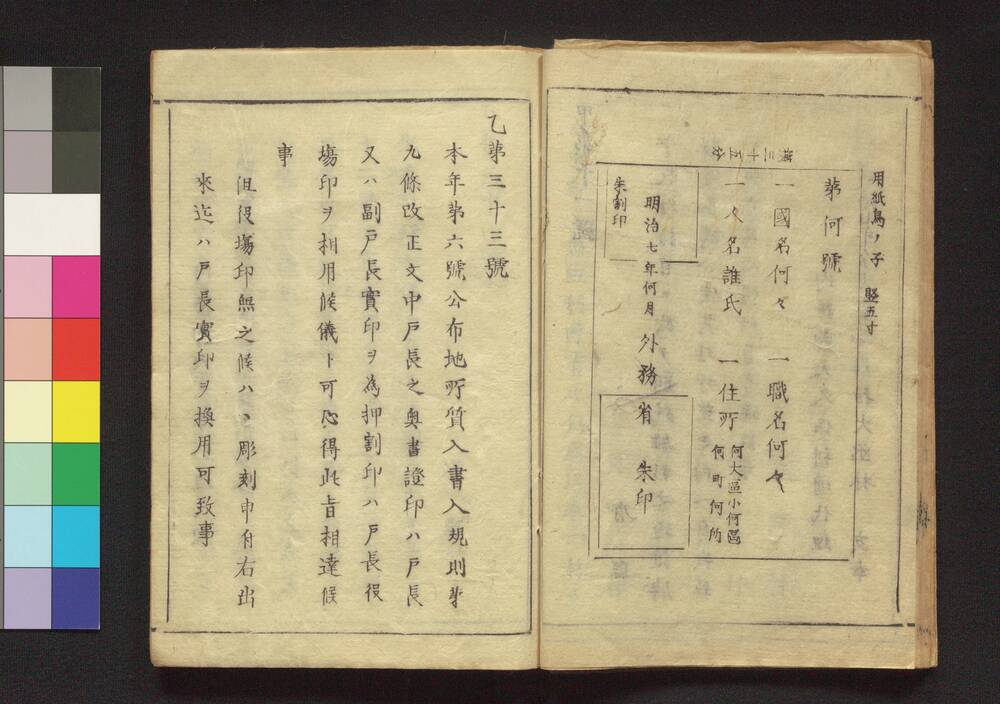 用紙鳥ノ子 竪五寸
横三寸五分
第何號
一國名何々 一職名何々
一人名誰氏 一住所 何大區小何區
何町何所
明治七年何月 外務省 朱印
朱割印
乙第三十三號
本年第六號公布地所質入書入規則第
九條改正文中戸長之奥書證印ハ戸長
又ハ副戸長實印ヲ為押割印ハ戸長役
塲印ヲ相用候儀ト可心得此旨相達候
事
但役塲印無之候ハヽ彫刻申付右出
來迄ハ戸長實印ヲ換用可致事